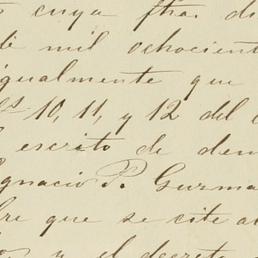 cuya fha. di
de mil ochocient
igualmente que
10, 11, y 12 del
escrito de dem
Ygnacio P. Guzma
que se cite a
y el decreto